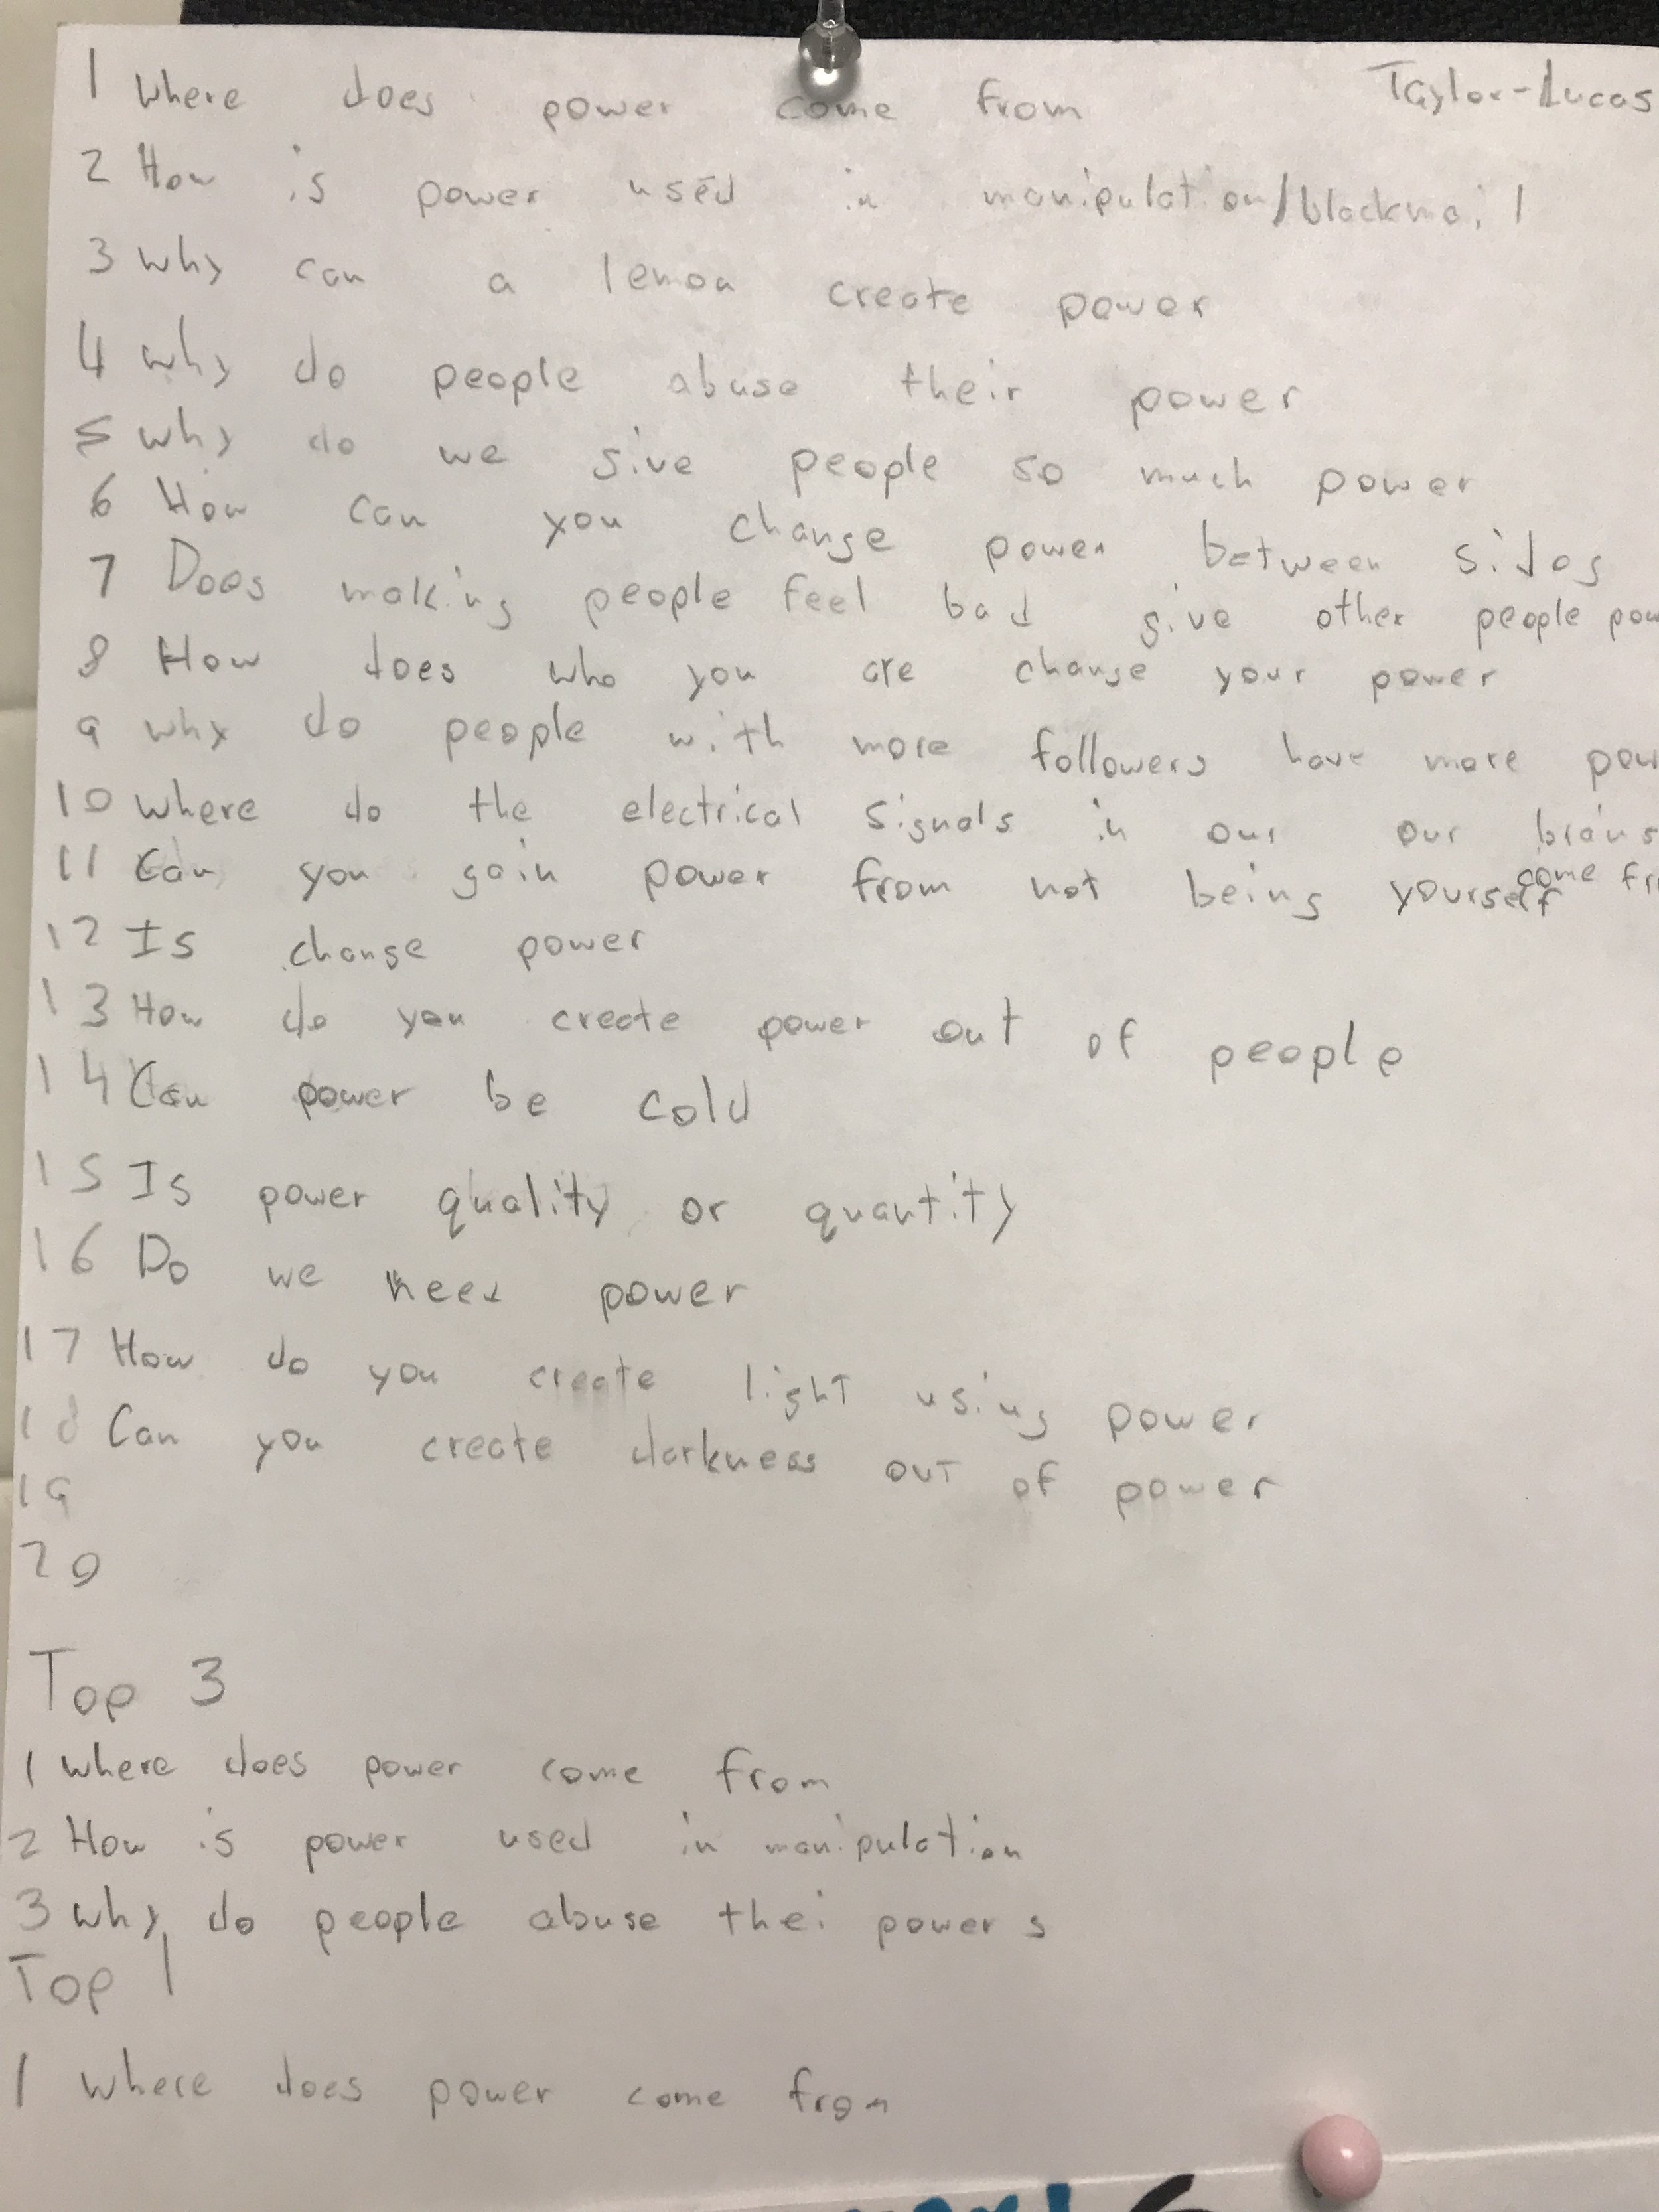 Taylor-Lucas
1 Where does power come from
2 How is power used in manipulation/blackmail
3 why can a lemon create power
4 why do people abuse their power
5 why do we give people so much power
6 How can you change power between sides
7 Does making people feel bad give other people pow
8 How does who you are change your power
9 why do people with more followers have more pow
10 where do the electrical signals in our our brains
come fr
11 Can you gain power from not being yourself
12 Is change power
13 How do you create power out of people
14 Can power be cold
15 Is power quality or quantity
16 Do we need power
17 How do you create light using power
18 Can you create darkness out of power
19
20
Top 3
1 where does power come from
2 How is power used in manipulation
3 why do people abuse thei powers
Top 1
1 where does power come from